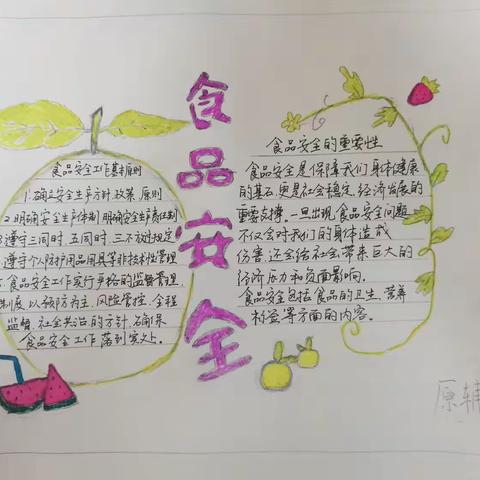 食品安全
食品安全工作基本原则
1.确立安全生产方针、政策、原则
2.明确安全生产体制,明确安全生产责任制
3.遵守三同时、五同时、三不放过规定
遵守个人防护用品用具等非技术性管理
食品安全工作实行严格的监督管理
制度,以预防为主,风险管控、全程
监督、社会共治的方针,确保
食品安全工作落到实处.
食品安全的重要性
食品安全是保障我们身体健康
的基石,更是社会稳定、经济发展的
重要支撑。一旦出现食品安全问题
不仅会对我们的身体造成
伤害,还会给社会带来巨大的
经济压力和负面影响.
食品安全包括食品的卫生、营养
等方面的内容.
原辅